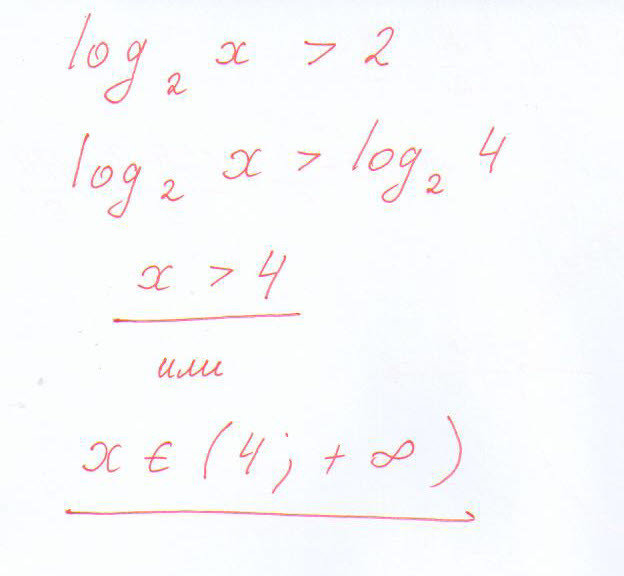 log₂ x > 2
log₂ x > log₂ 4
x > 4
или
x ∈ (4; + ∞)